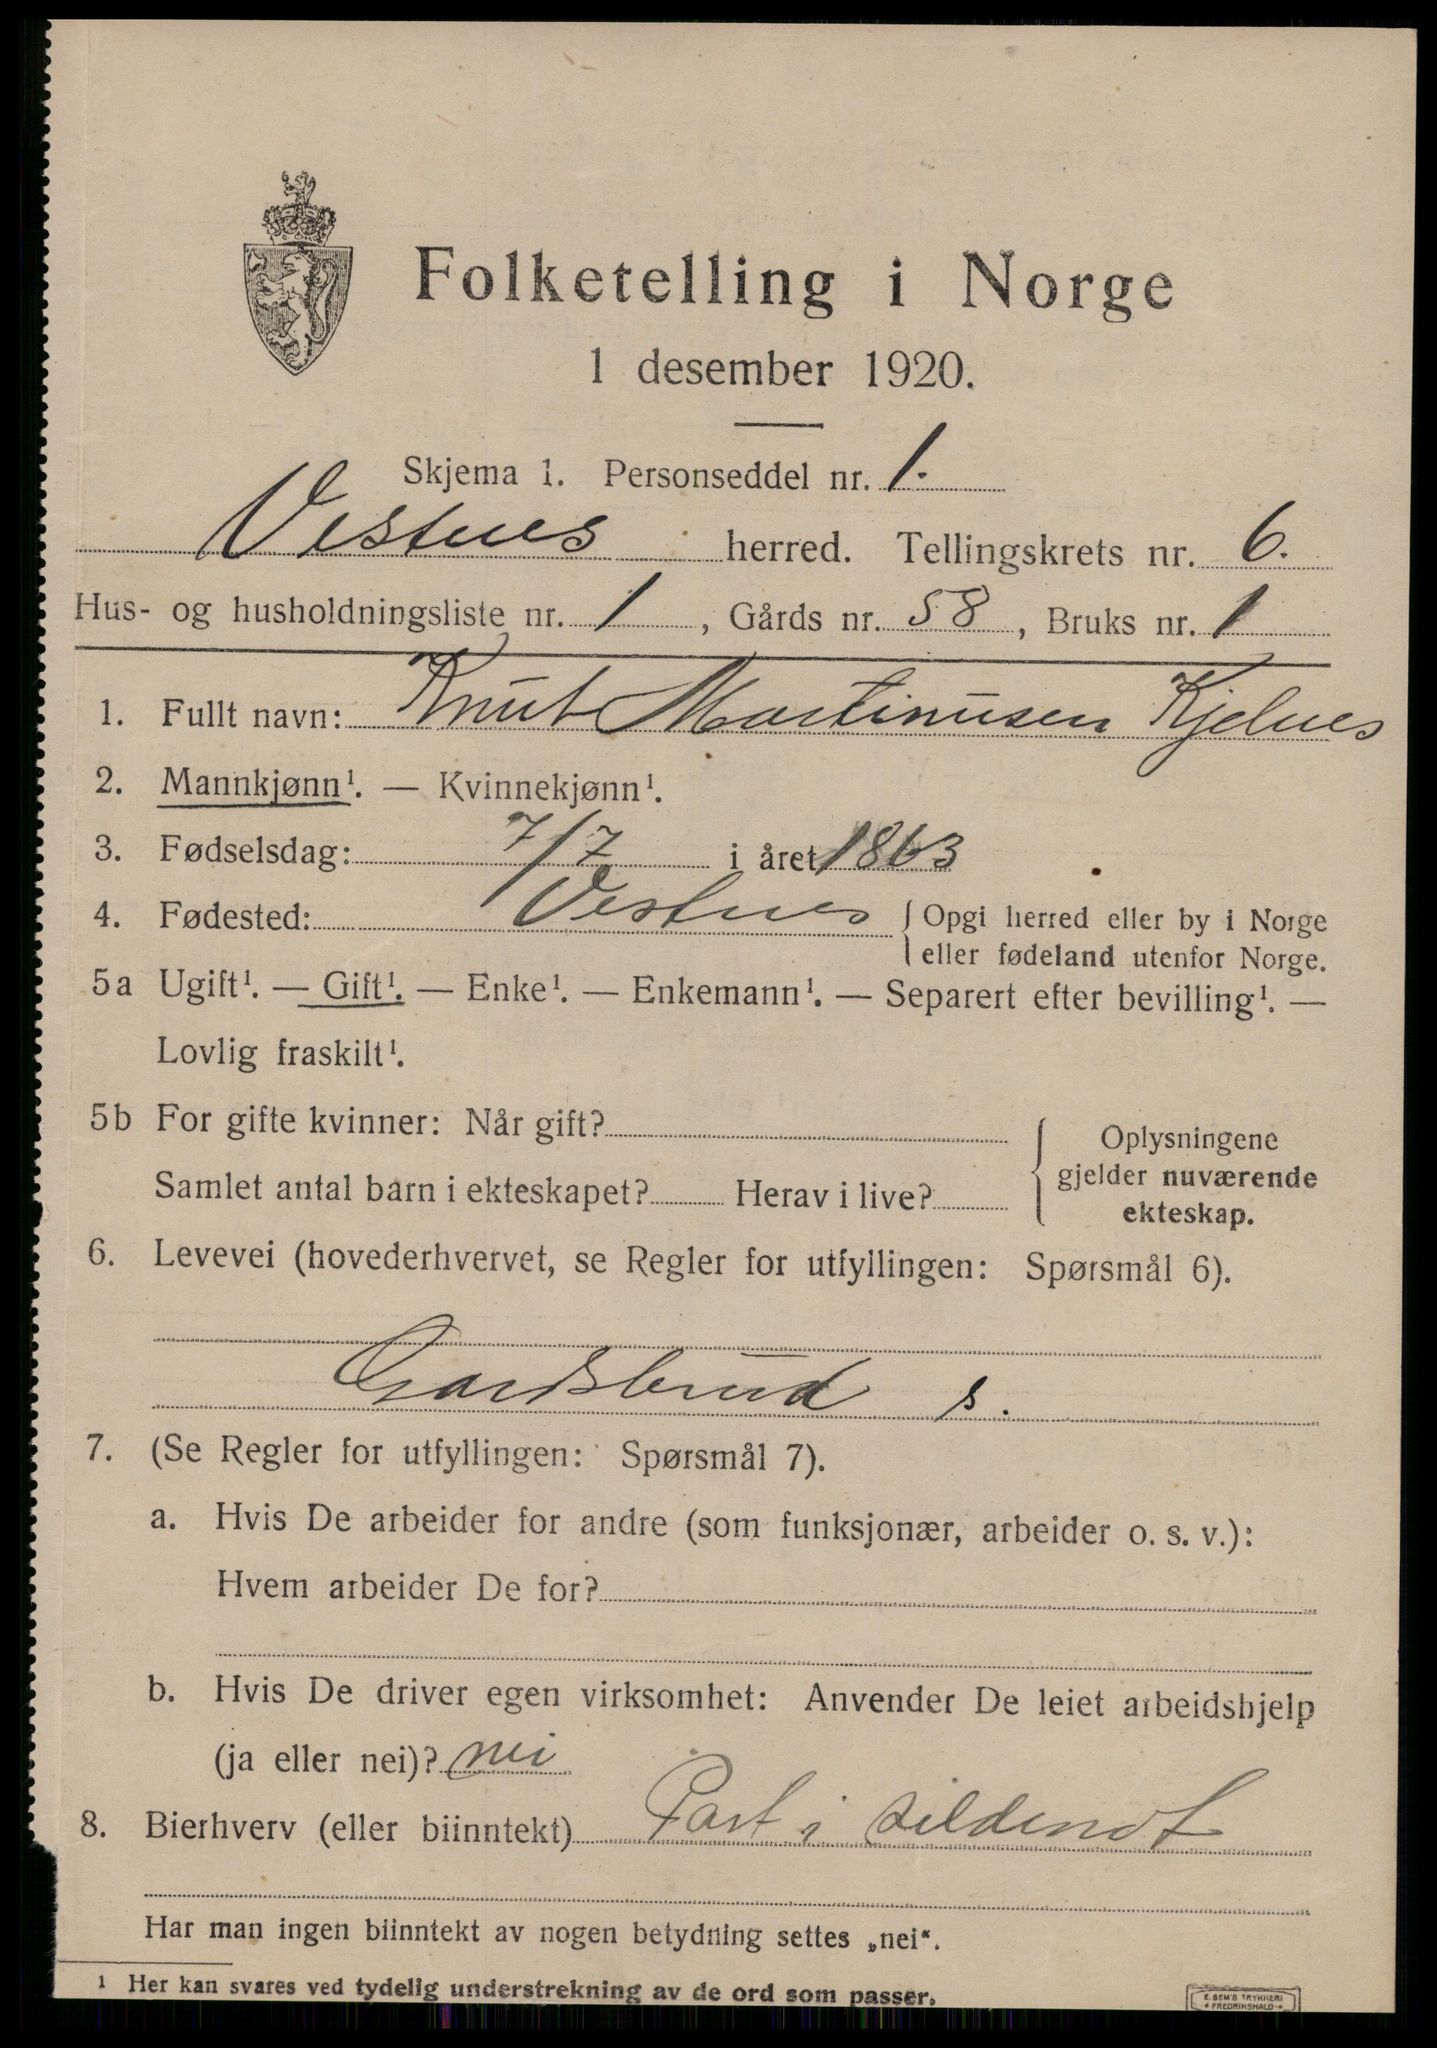 Folketelling i Norge
1 desember 1920.
Skjema 1. Personseddel nr. 1.
Vestnes herred. Tellingskrets nr. 6.
Hus- og husholdningsliste nr. 1, Gårds nr. 58, Bruks nr. 1
1. Fullt navn: Knut Martinusen Kjelnes
2. Mannkjønn¹. — Kvinnekjønn¹.
3. Fødselsdag: 7/7 i året 1863
4. Fødested: Vestnes { Opgi herred eller by i Norge
eller fødeland utenfor Norge.
5a Ugift¹. — Gift¹. — Enke¹. — Enkemann¹. — Separert efter bevilling¹. —
Lovlig fraskilt¹.
5b For gifte kvinner: Når gift?
Samlet antal barn i ekteskapet? Herav i live?
{ Oplysningene
gjelder nuværende
ekteskap.
6. Levevei (hovederhvervet, se Regler for utfyllingen: Spørsmål 6).
Gardsbrud s.
7. (Se Regler for utfyllingen: Spørsmål 7).
a. Hvis De arbeider for andre (som funksjonær, arbeider o. s. v.):
Hvem arbeider De for?
b. Hvis De driver egen virksomhet: Anvender De leiet arbeidshjelp
(ja eller nei)? nei
8. Bierhverv (eller biinntekt) Part i sildenot
Har man ingen biinntekt av nogen betydning settes „nei“.
¹ Her kan svares ved tydelig understrekning av de ord som passer.
E. SEM'S TRYKKERI
• FREDRIKSHALD •